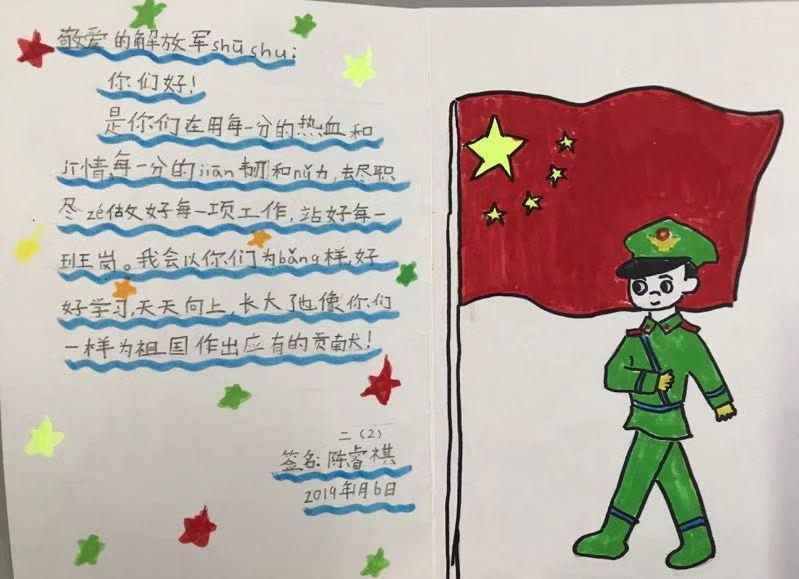 敬爱的解放军shūshu:
你们好!
是你们在用每一分的热血和
jī情,每一分的jiān韧和nǔ力,去尽职
尽zé做好每一项工作,站好每一
班岗。我会以你们为bǎng样,好
好学习,天天向上,长大了也像你们
一样为祖国作出应有的贡献!
二(2)
签名:陈睿祺
2019年1月6日